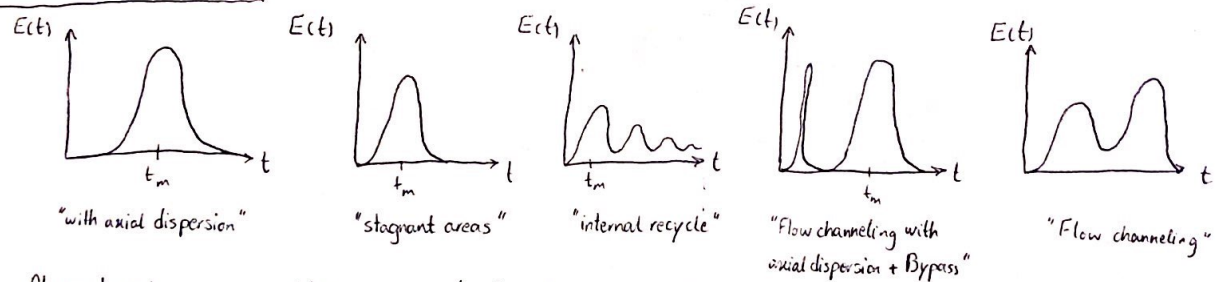 E(t)
t
tm
"with axial dispersion"
E(t)
t
tm
"stagnant areas"
E(t)
t
tm
"internal recycle"
E(t)
t
tm
"Flow channeling with
axial dispersion + Bypass"
E(t)
t
"Flow channeling"